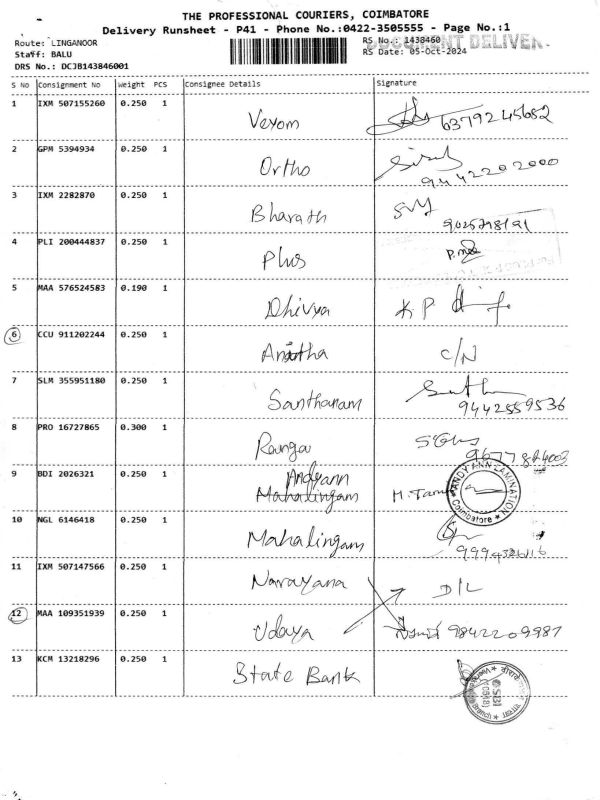 THE PROFESSIONAL COURIERS, COIMBATORE
Delivery Runsheet - P41 - Phone No.:0422-3505555 - Page No.:1
Route: LINGANOOR
RS No.: 1438460
Staff: BALU
RS Date: 05-Oct-2024
DRS No.: DCJB143846001
S No Consignment No Weight PCS Consignee Details Signature
1 IXM 507155260 0.250 1 Veyom 6379245682
2 GPM 5394934 0.250 1 Ortho 9442202000
3 IXM 2282870 0.250 1 Bharath
4 PLI 200444837 0.250 1 Plus
5 MAA 576524583 0.190 1 Dhivya K P
6 CCU 911202244 0.250 1 Anitha C/N
7 SLM 355951180 0.250 1 Santhanam 9442559536
8 PRO 16727865 0.300 1 Ranga
9 BDI 2026321 0.250 1 Andyann
Mahalingam
ANDY ANN LAMINATION
Coimbatore
10 NGL 6146418 0.250 1 Mahalingam
11 IXM 507147566 0.250 1 Narayana D/L
12 MAA 109351939 0.250 1 Udaya 9842209987
13 KCM 13218296 0.250 1 State Bank
SBI